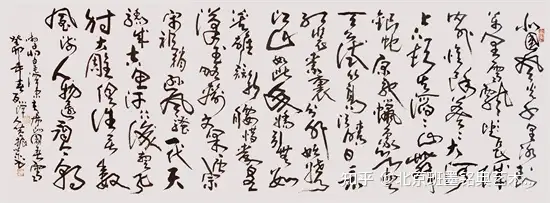 北国风光千里冰封
万里雪飘望长城内
外惟余莽莽大河
上下顿失滔滔山舞
银蛇原驰蜡象欲与
天公试比高须晴日看
红装素裹分外妖娆
江山如此多娇引无数
英雄竞折腰惜秦皇
汉武略输文采唐宗
宋祖稍逊风骚一代天
骄成吉思汗只识弯弓
射大雕俱往矣数
风流人物还看今朝
毛泽东沁园春雪
癸卯年
知乎 @北京班墨铭典艺术